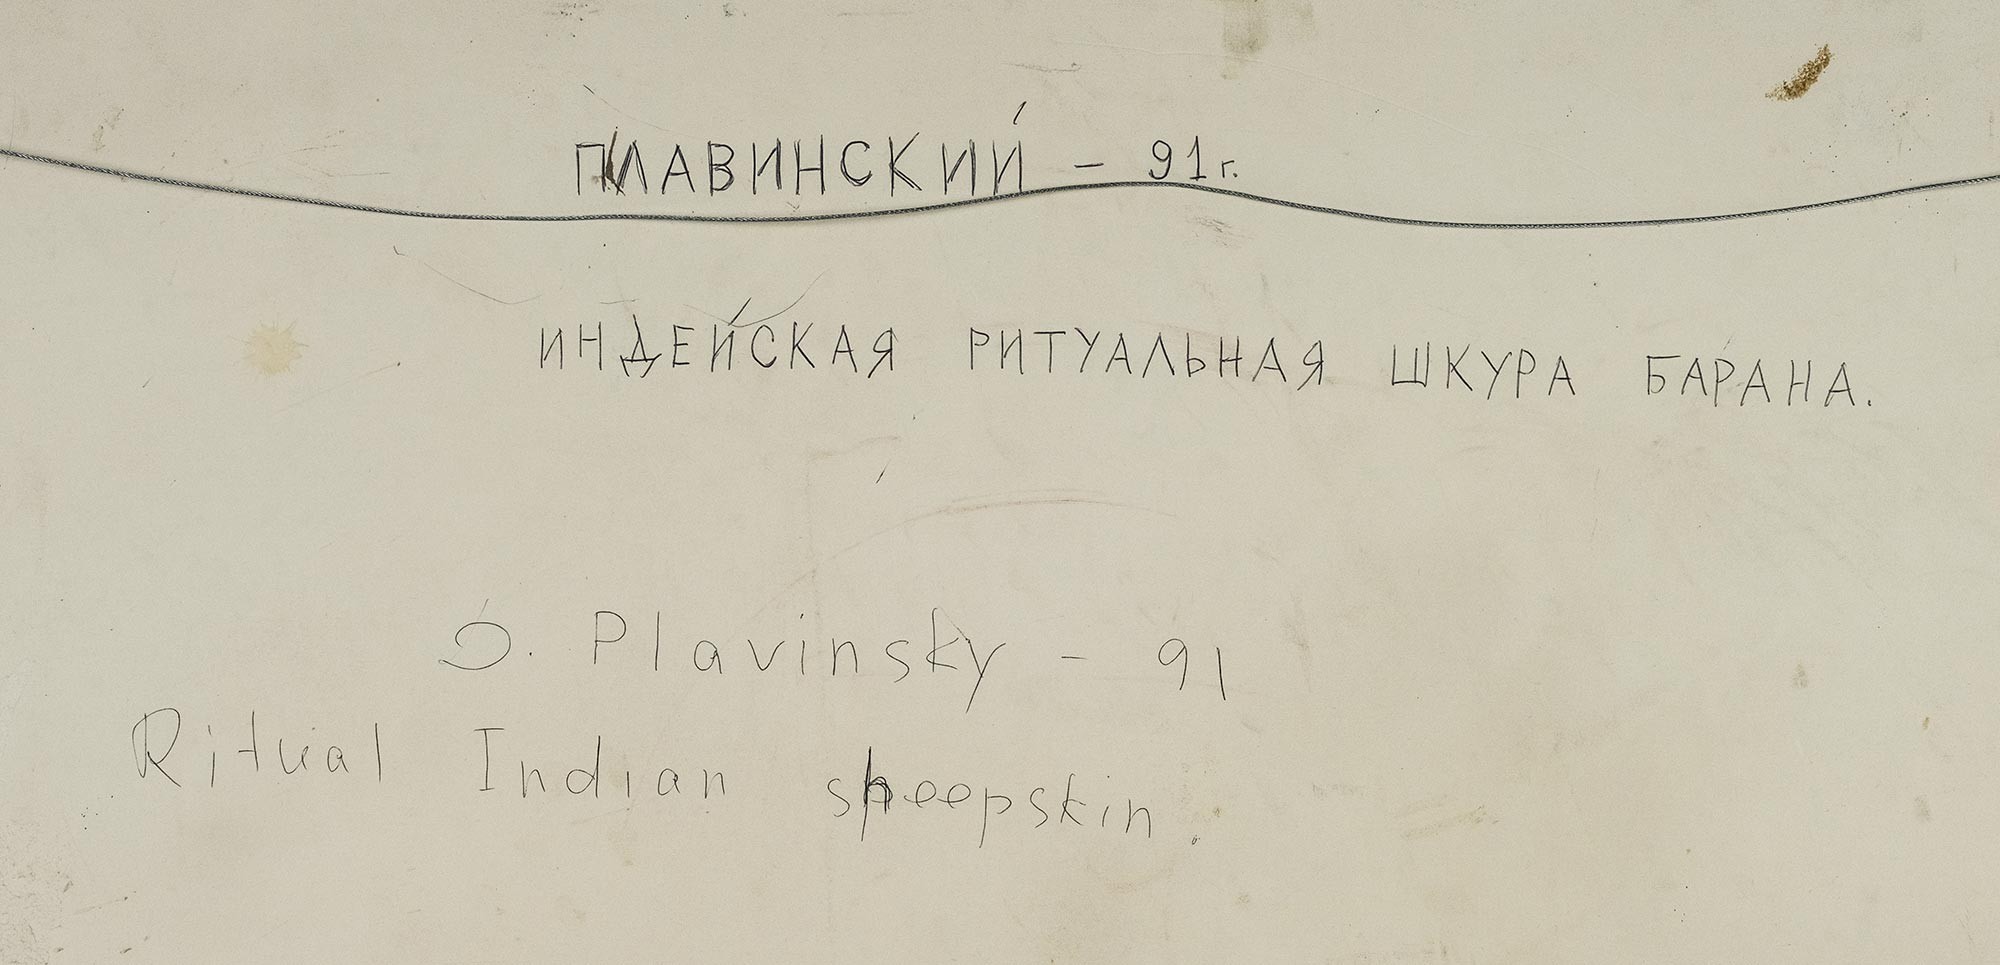 ПЛАВИНСКИЙ – 91 г.
ИНДЕЙСКАЯ РИТУАЛЬНАЯ ШКУРА БАРАНА.
D. Plavinsky – 91
Ritual Indian sheepskin.